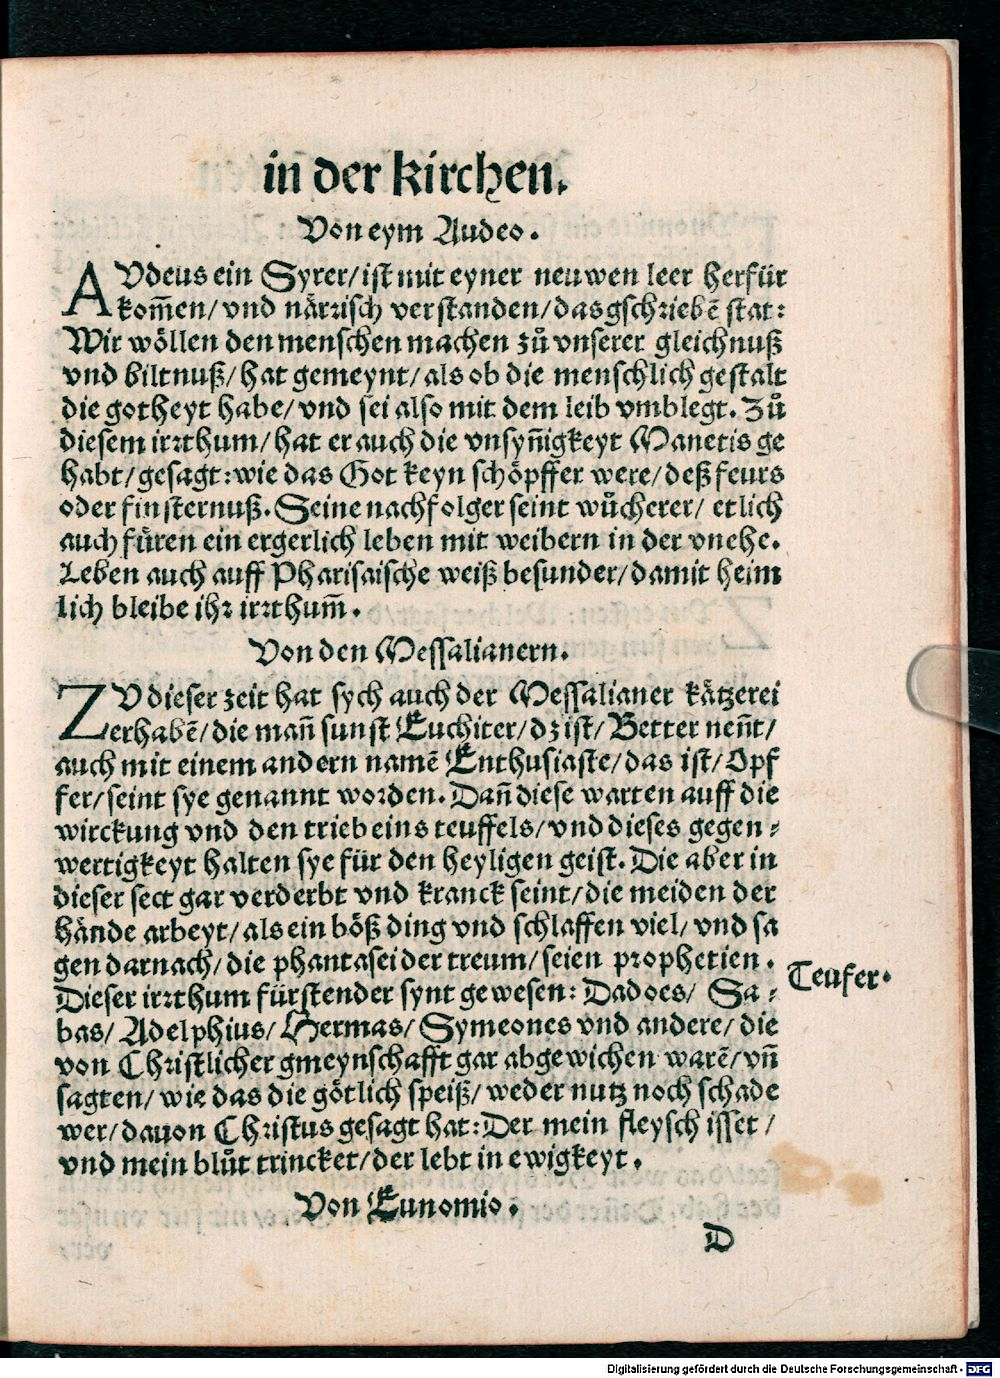 in der kirchen.
Von eym Audeo.
AVdeus ein Syrer/ ist mit eyner neuwen leer herfür
kom̃en/ vnd närrisch verstanden/ das gschriebẽ stat:
Wir wöllen den menschen machen zů vnserer gleichnuß
vnd biltnuß/ hat gemeynt/ als ob die menschlich gestalt
die gotheyt habe/ vnd sei also mit dem leib vmblegt. Zů
diesem irrthum/ hat er auch die vnsyñigkeyt Manetis ge
habt/ gesagt: wie das Got keyn schöpffer were/ deß feurs
oder finsternuß. Seine nachfolger seint wůcherer/ etlich
auch füren ein ergerlich leben mit weibern in der vnehe.
Leben auch auff Pharisaische weiß besunder/ damit heim
lich bleibe ihr irrthum̃.
Von den Messalianern.
ZV dieser zeit hat sych auch der Messalianer kätzerei
erhabẽ/ die mañ sunst Euchiter/ dz ist/ Better neñt/
auch mit einem andern namẽ Enthusiaste/ das ist/ Opf
fer/ seint sye genannt worden. Dañ diese warten auff die
wirckung vnd den trieb eins teuffels/ vnd dieses gegen⸗
wertigkeyt halten sye für den heyligen geist. Die aber in
dieser sect gar verderbt vnd kranck seint/ die meiden der
hände arbeyt/ als ein böß ding vnd schlaffen viel/ vnd sa
gen darnach/ die phantasei der treum/ seien prophetien.
Teufer.
Dieser irrthum fürstender synt gewesen: Dadoes/ Sa⸗
bas/ Adelphius/ Hermas/ Symeones vnd andere/ die
von Christlicher gmeynschafft gar abgewichen warẽ/ vñ
sagten/ wie das die götlich speiß/ weder nutz noch schade
wer/ dauon Christus gesagt hat: Der mein fleysch isset/
vnd mein blůt trincket/ der lebt in ewigkeyt.
Von Eunomio.
D
Digitalisierung gefördert durch die Deutsche Forschungsgemeinschaft - DFG